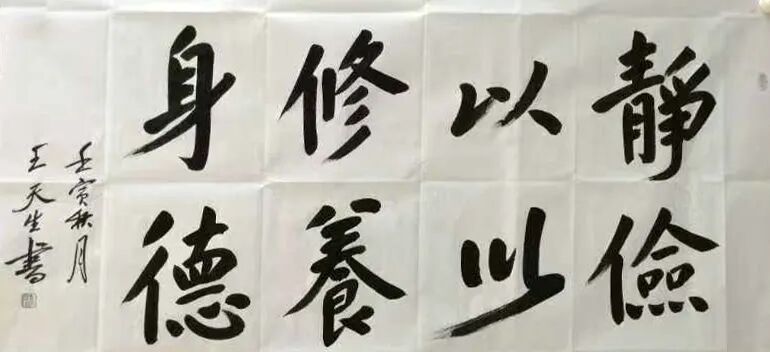 靜以修身
儉以養德
壬寅秋月
王天生書